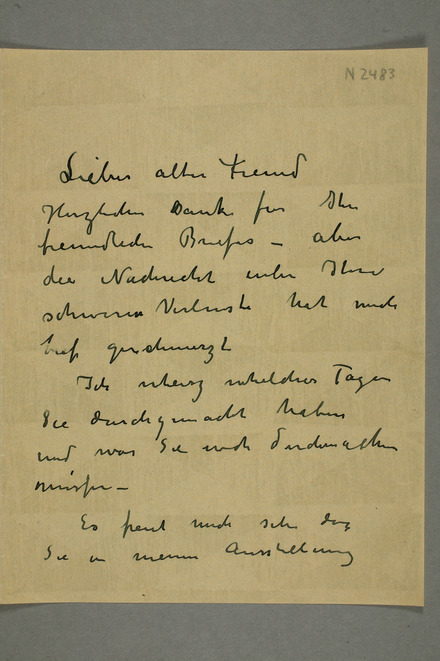 N 2483
Lieber alter Freund
Herzlichen Dank für Ihre
freundlichen Briefes – aber
die Nachricht über Ihre
schweren Verluste hat mich
tief geschmerzt
Ich Tage
Sie durchgemacht haben
und was Sie noch durchmachen
müssen –
Es freut mich sehr dass
Sie in meiner Ausstellung